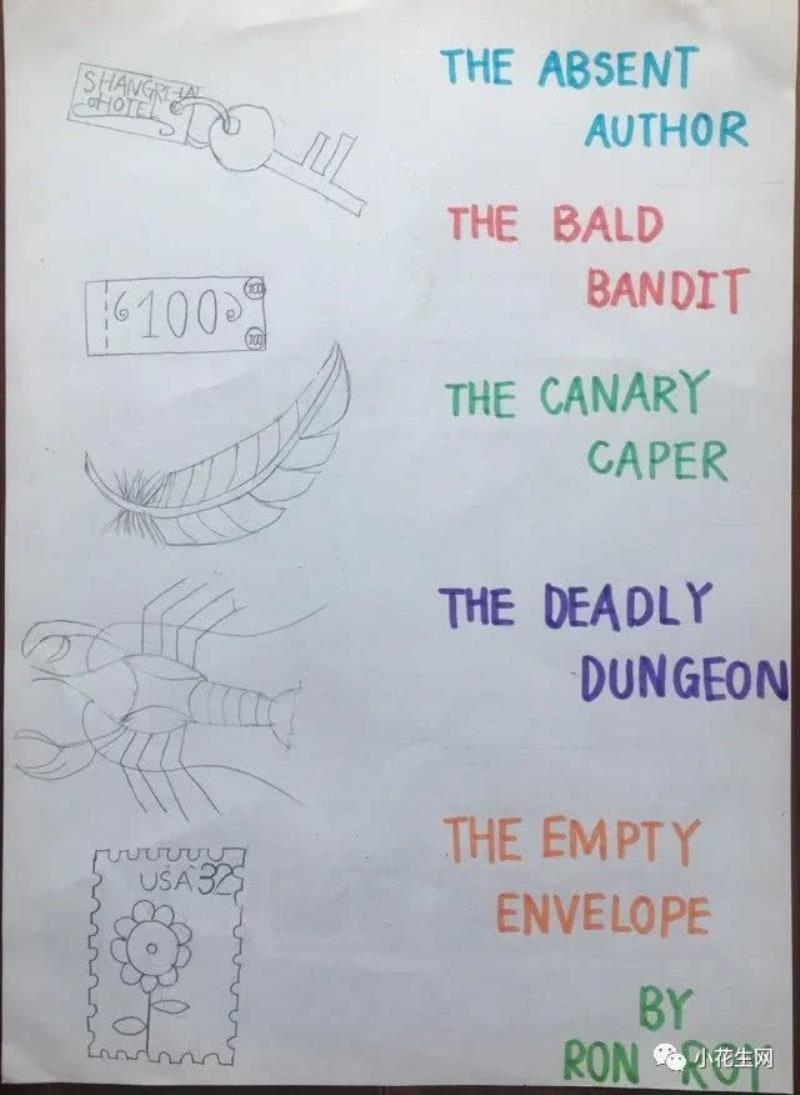 SHANGRI-LA
HOTEL
THE ABSENT
AUTHOR
THE BALD
BANDIT
100
100
100
THE CANARY
CAPER
THE DEADLY
DUNGEON
THE EMPTY
ENVELOPE
USA 32
BY
RON ROY
小花生网